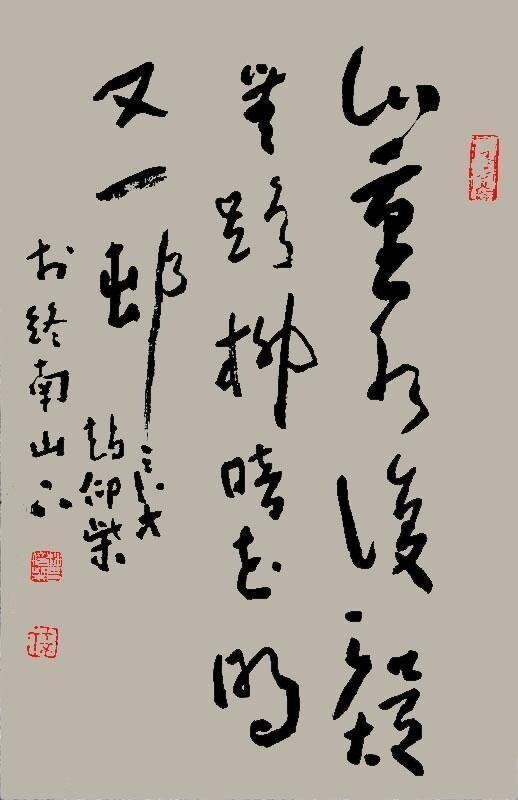 山重水復疑
無路柳暗花明
又一邨
趙仰柴
於終南山下